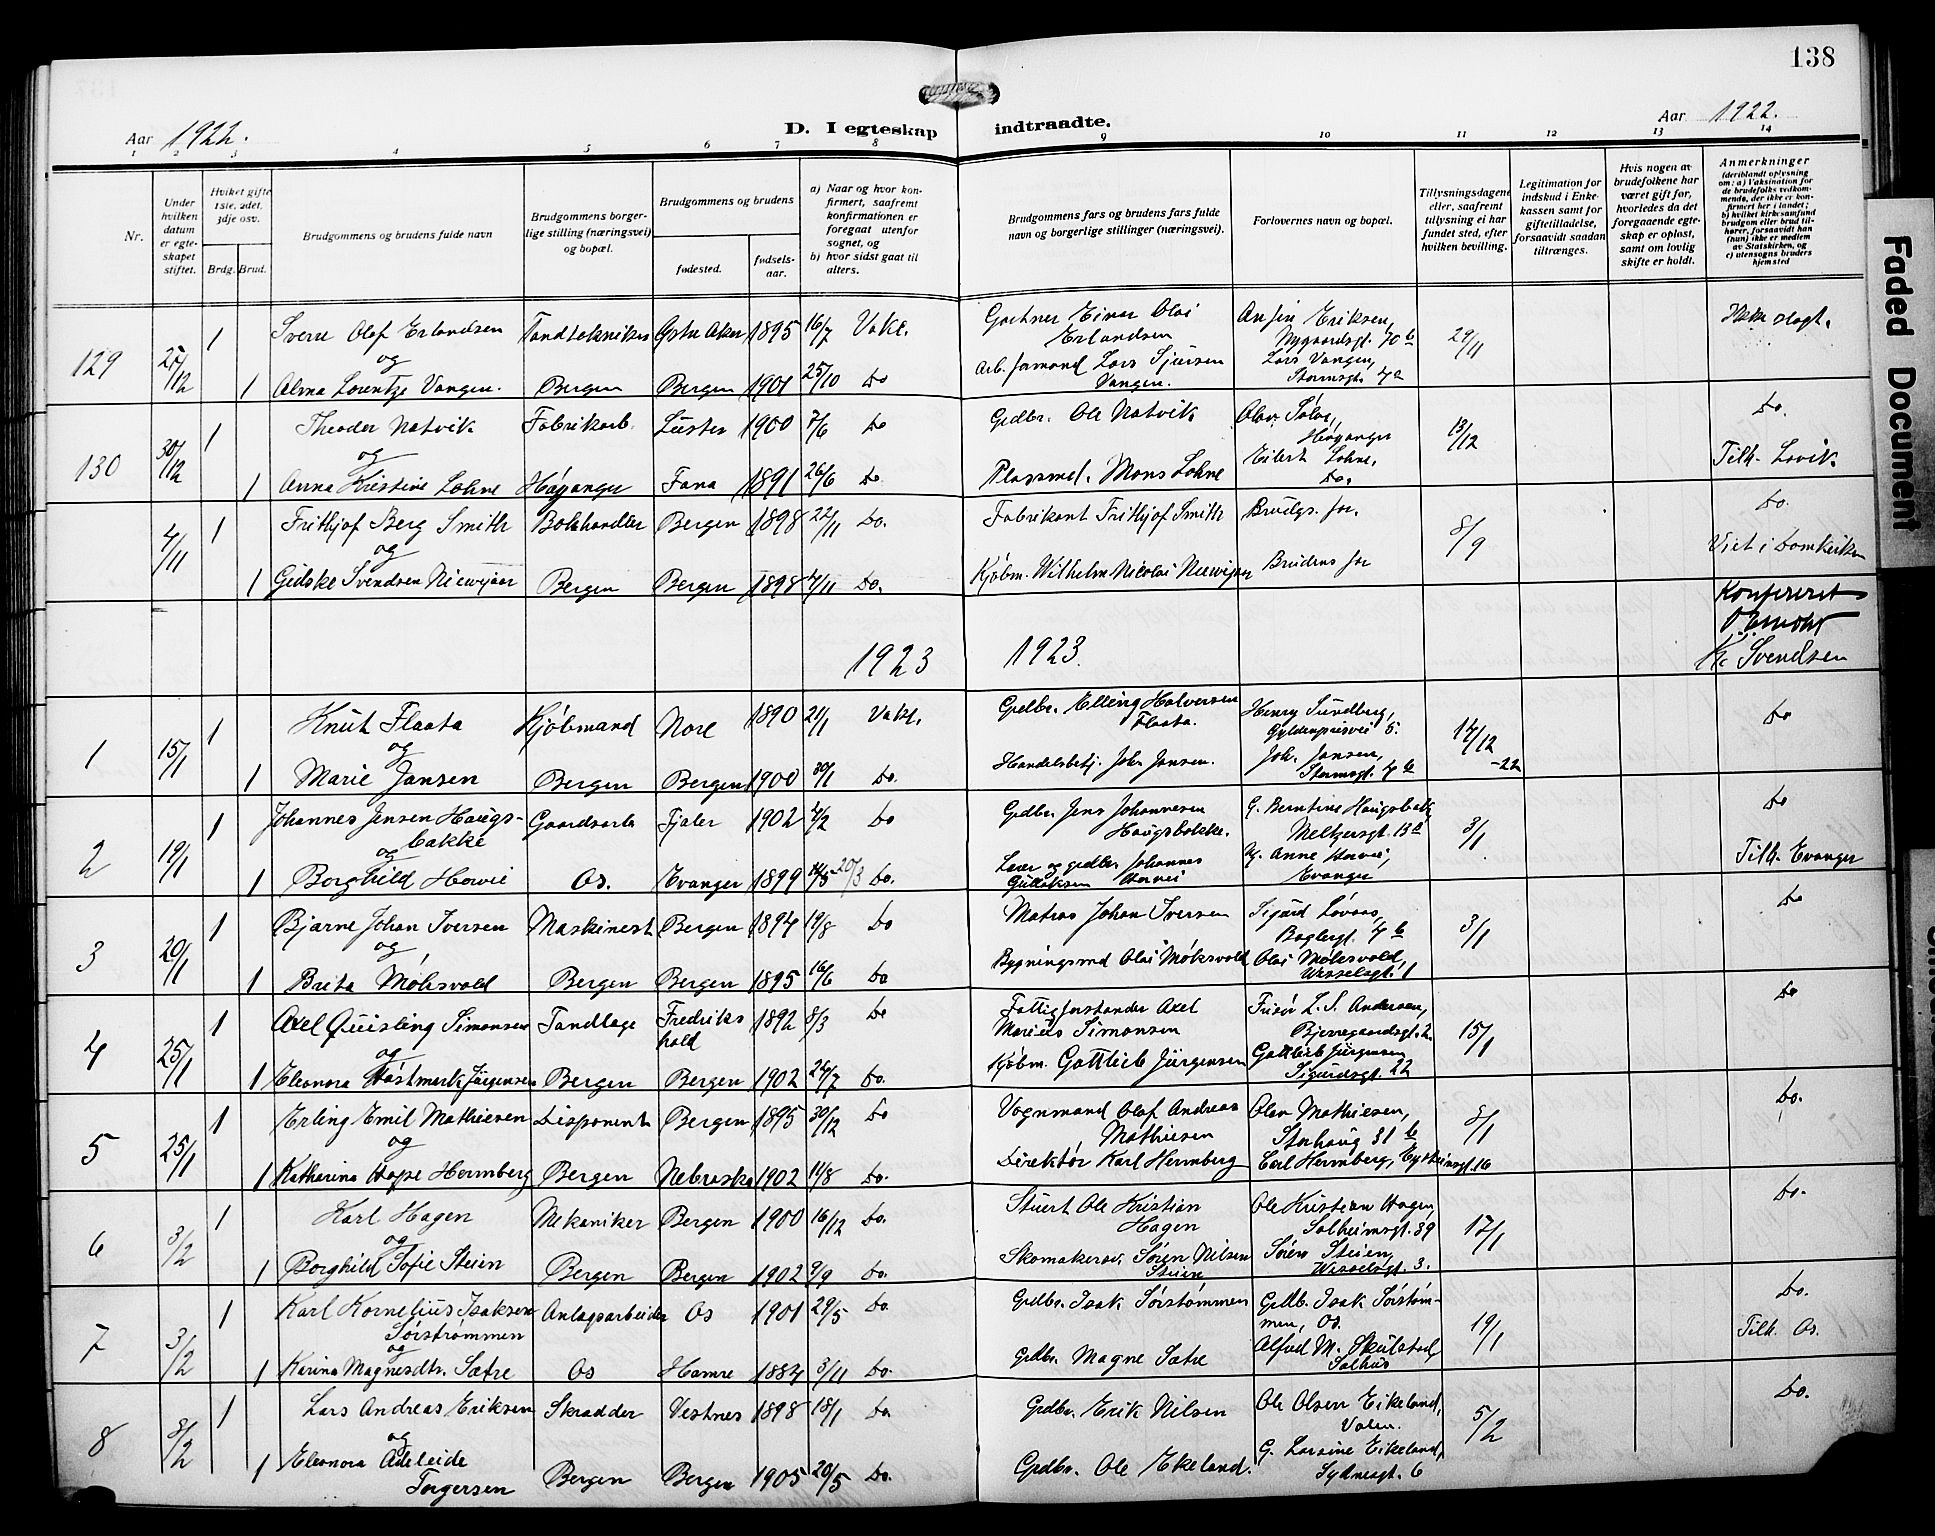 138
Aar 1922.
D. I egteskap indtraadte.
Aar 1922.
1 2 3 4 5 6 7 8 9 10 11 12 13 14
Nr.
Under hvilken datum er egteskapet stiftet.
Hvilket gifte 1ste, 2det, 3dje osv.
Brdg. Brud.
Brudgommens og brudens fulde navn
Brudgommens borgerlige stilling (næringsvei) og bopæl.
Brudgommens og brudens
fødested.
fødselsaar.
a) Naar og hvor konfirmert, saafremt konfirmationen er foregaat utenfor sognet, og
b) hvor sidst gaat til alters.
Brudgommens fars og brudens fars fulde navn og borgerlige stillinger (næringsvei).
Forlovernes navn og bopæl.
Tillysningsdagene eller, saafremt tillysning ei har fundet sted, efter hvilken bevilling.
Legitimation for indskud i Enkekassen samt for giftetilladelse, forsaavidt saadan tiltrænges.
Hvis nogen av brudefolkene har været gift før, hvorledes da det foregaaende egteskap er opløst, samt om lovlig skifte er holdt.
Anmerkninger
(deriblandt oplysning om: a) Vaksination for de brudefolks vedkommende, der ikke er konfirmert her i landet; b) hvilket kirkesamfund brudgom eller brud tilhører, forsaavidt han (hun) ikke er medlem av Statskirken, og c) utensogns bruders hjemsted
129 27/12 1 Sverre Olaf Erlandsen Tandtekniker Østre Aker 1895 16/7 Vakc. Gartner Einar Olai Erlandsen
og
1 Alma Lorentze Vangen. Bergen Bergen 1901 25/10 Do Arb. formand Lars Sjursen Vangen. Lars Vangen, 29/11
130 30/12 1 Theodor Natvik Fabrikarb. Luster 1900 7/6 Do Grdbr. Ole Natvik Høyanger 13/12 Do.
og
1 Anna Kristine Lohne Høyanger Fana 1891 26/6 Do Mons Lohne Eilert Lohne, Do. Tilh. Lavik
4/11 1 Frithjof Berg Smith Bokhandler Bergen 1898 22/11 Do. Fabrikant Frithjof Smith Brudgs. far. 8/9 Do.
og
1 Svendsen Bergen Bergen 1898 4/11 Do. Kjøbm. Wilhelm Nicolai Brudens far Viet i Domkirken
Konfereret
K. Svendsen
1923 1923.
1 15/1 1 Knut Flaata Kjøbmand Nore 1890 21/1 Vakc. Grdbr. Elling Halvorsen Flaata. Henry Sundberg, 14/12 -22 Do
og
1 Marie Jansen Bergen Bergen 1900 30/1 Do. Handelsbetj. Joh. Jansen. Joh. Jansen, Stormsgt. 4 b
2 19/1 1 Johannes Jensen Haugsbakke Gaardsarb Fjaler 1902 2/2 Do Grdbr. Jens Johannesen Haugsbakke. G. Berntine Haugsbakk, Meltzersgt. 13 3/1 Do
og
1 Borghild Horvei Os. Evanger 1899 20/3 Do. Lærer og grdbr. Johannes Gullaksen Horvei Anne Horvei, Evanger Tilh. Evanger
3 20/1 1 Bjarne Johan Iversen Maskinest Bergen 1894 19/8 Do Matros Johan Iversen Sigurd Løvaas, Baglergt. 4 b 3/1 Do
og
1 Brita Møksvold Bergen Bergen 1895 16/6 Do Bygningssnd Olai Møksvold Olai Møksvold, Wesselsgt. 1
4 25/1 1 Axel Quisling Simonsen Tandlæge Fredrikshald 1892 8/3 Do Fattigforstander Axel Marius Simonsen Frisør L. S. Andersen, 15/1 Do
og
1 Eleonora Høstmark Jürgensen Bergen Bergen 1902 24/7 Do. Kjøbm. Gottlieb Jürgensen Gottlieb Jürgensen Sigurdsgt. 22
5 25/1 1 Erling Emil Mathiesen Disponent Bergen 1895 30/12 Do Vognmand Olaf Andreas Mathiesen Olav Mathiesen, Storhaug 31 b 8/1 Do.
og
1 Katharina Hope Hermberg Bergen Nebraska 1902 11/8 Do. Direktør Karl Hermberg Carl Hermberg, Eysteinsgt. 16
6 3/2 1 Karl Hagen Mekaniker Bergen 1900 16/12 Do. Stuert Ole Kristian Hagen Ole Kristian Hagen, Solheimsgt. 39 17/1 Do.
og
1 Borghild Sofie Steien Bergen Bergen 1902 9/9 Do. Skomakersv. Søren Nilsen Steien Søren Steien, Wesselsgt. 3.
7 3/2 1 Karl Kornelius Isaksen Sørstrømmen Anlægsarbeider Os 1901 29/5 Do. Grdbr. Isak Sørstrømmen Grdb. Isak Sørstrømmen, Os. 19/1 Do.
og
1 Karina Magnesdtr. Sætre Os Hamre 1884 3/11 Do. Grdbr. Magne Sætre Alfred M. Skulstad, Salhus Tilh. Os.
8 8/2 1 Lars Andreas Eriksen Skrædder Vestnes 1898 18/1 Do. Grdbr. Erik Nilsen Ole Olsen Eikeland, Valen. 5/2 Do.
og
1 Eleonora Adeleide Torgersen Bergen Bergen 1905 20/5 Do. Grdbr. Ole Ekeland. G. Larsine Eikeland, Sydnesgt. 6
Faded Document